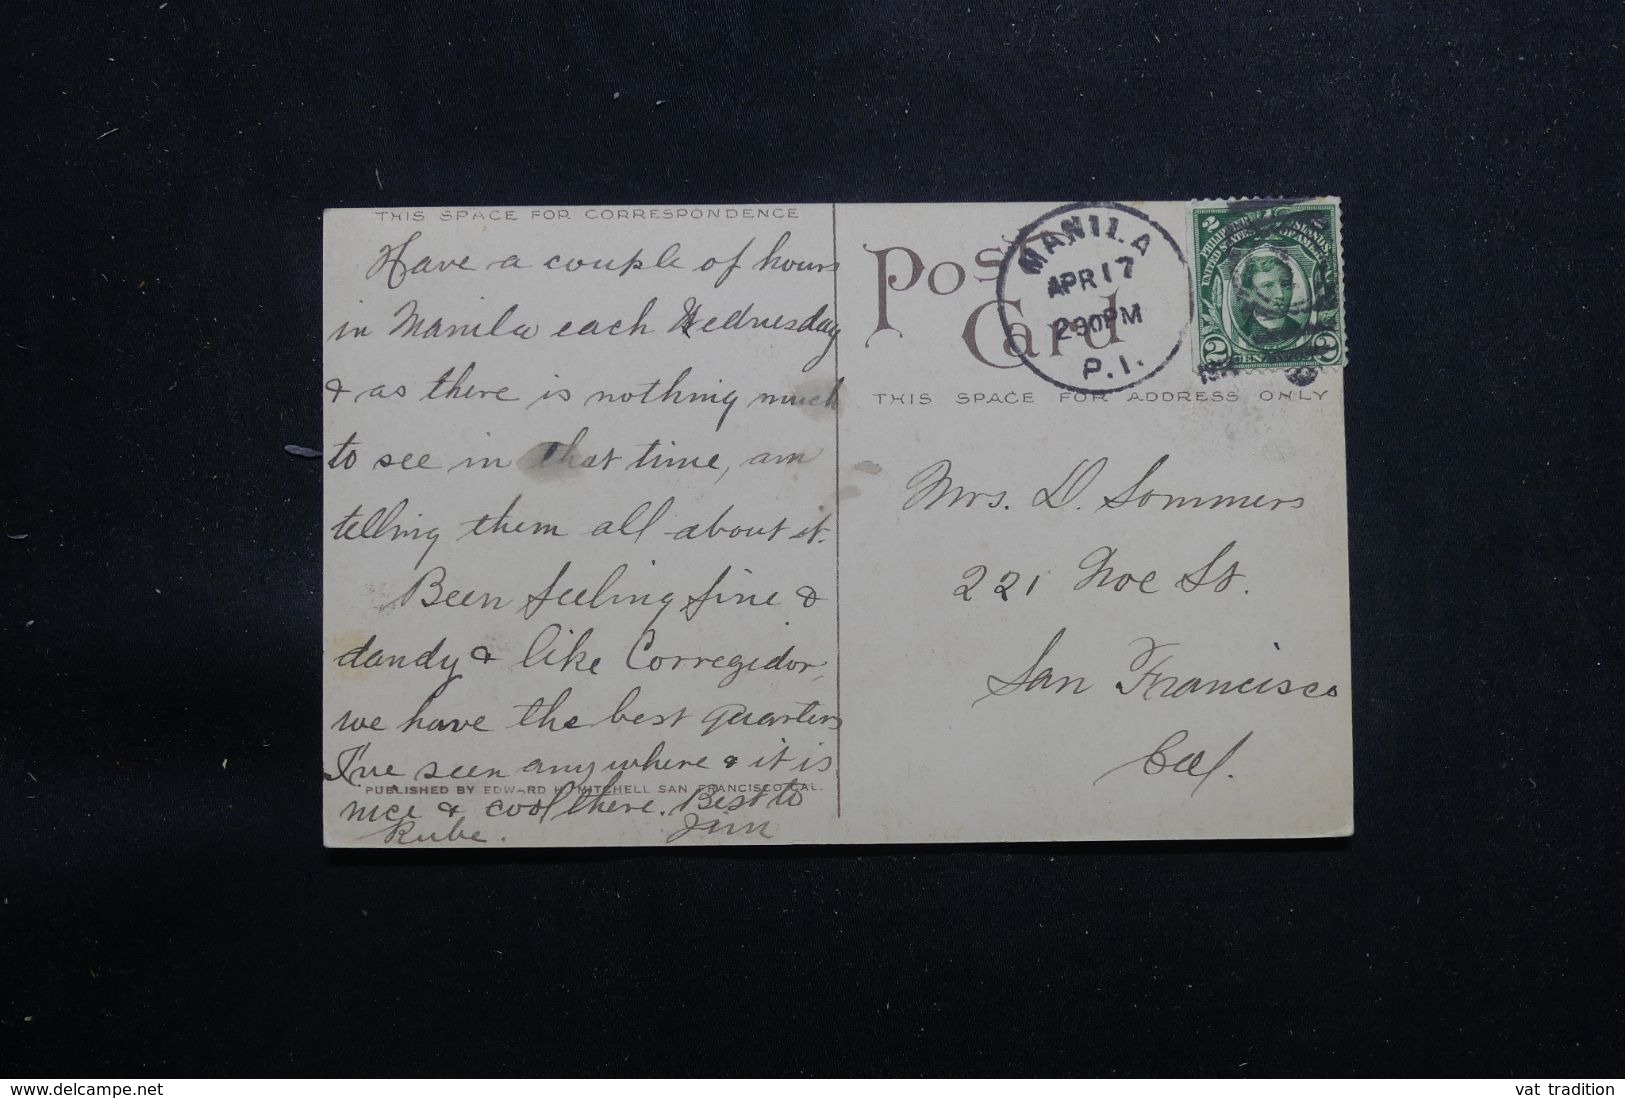 THIS SPACE FOR CORRESPONDENCE
Have a couple of hours
in Manila each Wednesday
& as there is nothing much
to see in that time, am
telling them all about it.
Been feeling fine &
dandy & like Corregidor,
we have the best quarters
I've seen anywhere & it is
PUBLISHED BY EDWARD H. MITCHELL SAN FRANCISCO CAL.
nice & cool there. Best to
Rube. Jim
Post
Card
MANILA
APR 17
230PM
P.I.
2 PHILIPPINE ISLANDS
UNITED STATES OF AMERICA
2 CENTAVOS 2
THIS SPACE FOR ADDRESS ONLY
Mrs. D. Sommers
221 Noe St.
San Francisco
Cal.
www.delcampe.net
vat_tradition